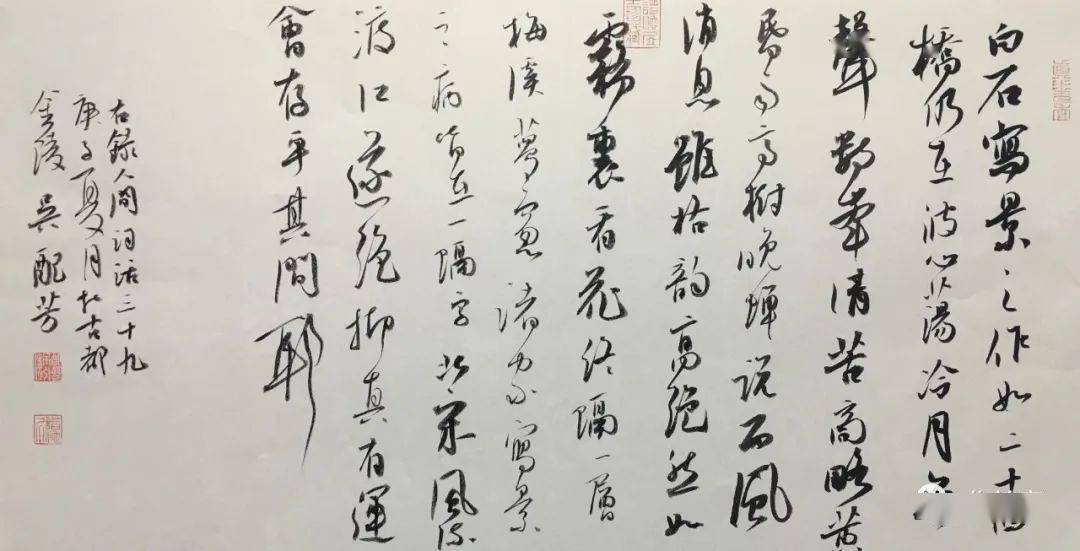 白石寫景之作如二十四
橋仍在波心蕩冷月無
聲數峯清苦商略黄
昏雨高樹晚蟬說西風
消息雖格韵高絶然如
霧裏看花終隔一層
梅溪夢窗諸家寫景
之病皆在一隔字北宋風流
渡江遂絶抑真有運
會存乎其間耶
右錄人間詞話三十九
庚子夏月於古都
金陵吳配芳